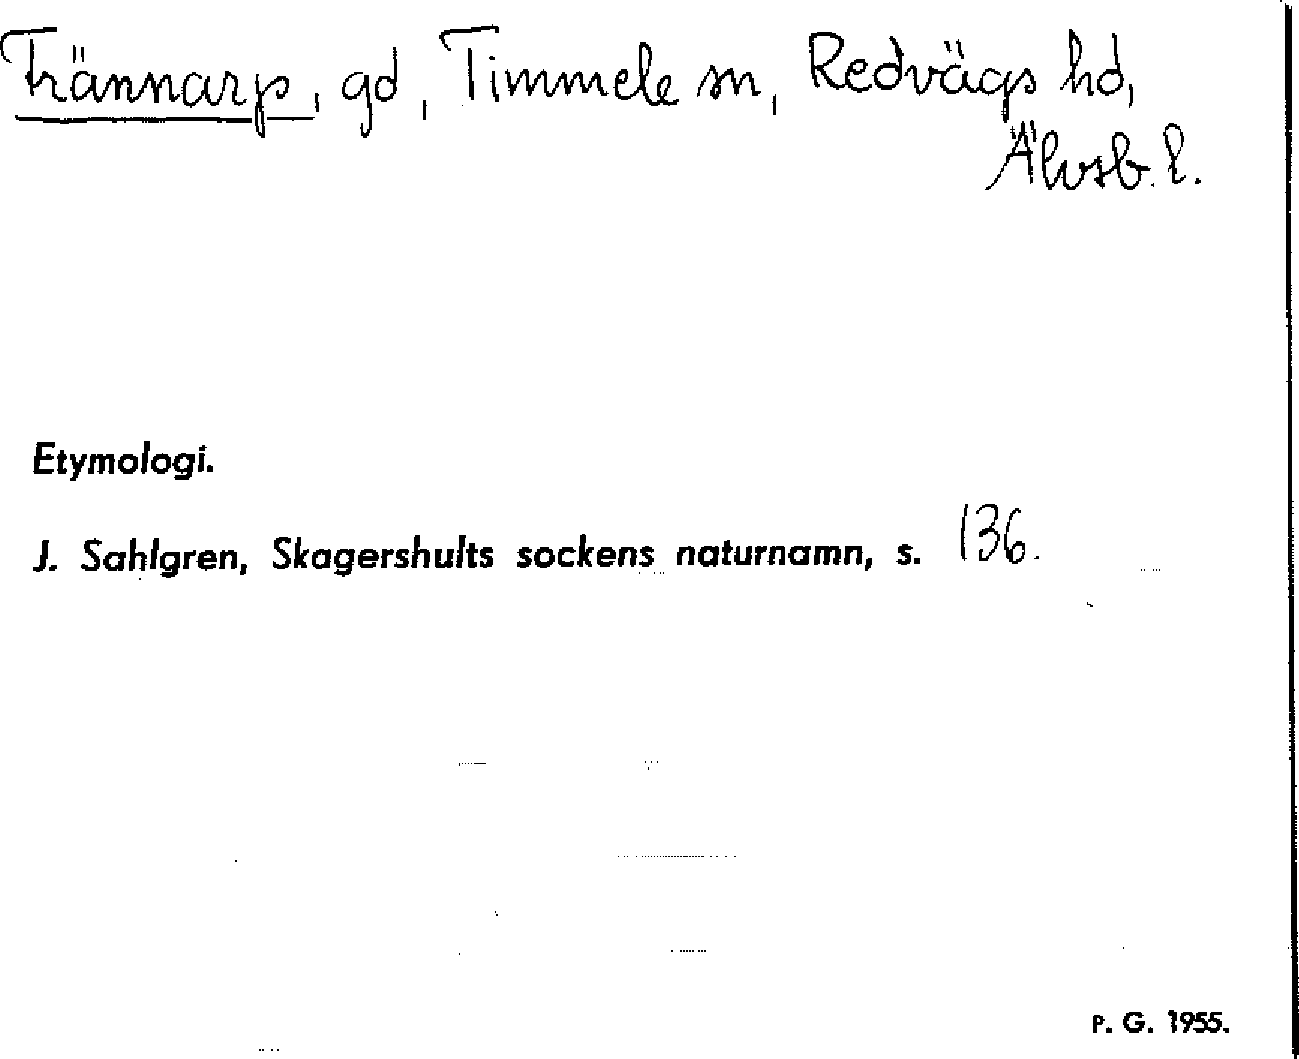 Trännarp, gd, Timmele sn, Redvägs hd,
Älvsb. l.
Etymologi.
J. Sahlgren, Skagershults sockens naturnamn, s. 136.
P. G. 1955.